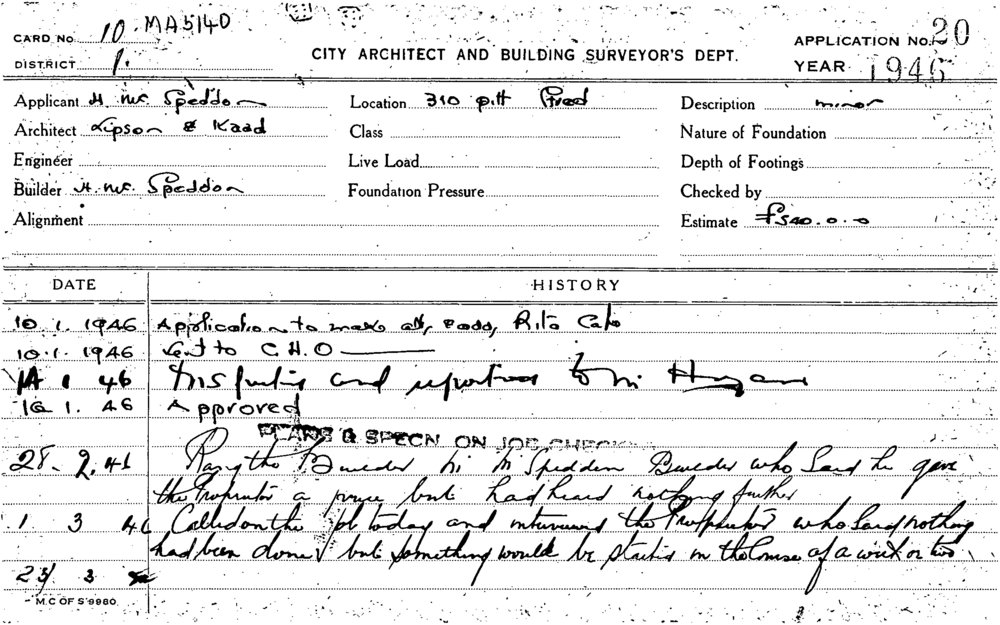 CARD No 10 MA5140
DISTRICT 1.
CITY ARCHITECT AND BUILDING SURVEYOR'S DEPT.
APPLICATION No. 20
YEAR 1946
Applicant H. Mc Speddon Location 310 pitt Street Description minor
Architect Lipson & Kaad Class Nature of Foundation
Engineer Live Load Depth of Footings
Builder H. Mc. Speddon Foundation Pressure Checked by
Alignment Estimate £540.0.0
DATE HISTORY
10 1. 1946 Application to make alt, adds, Rito Cafe
10.1.1946 Sent to C.H.O
1 46 Inspecting and reported to Mr
1. 46 Approved
PLANS & SPECN ON JOB CHECK
28. 2. 46 Rang the Builder Mr Mc Spedden Builder who said he gave
the Proprietor a price but had heard nothing further
1 3 46 Called on the job today and interviewed the Proprietor who said nothing
had been done but something would be started in the course of a week or two
23/ 3
M.C OF S 9980